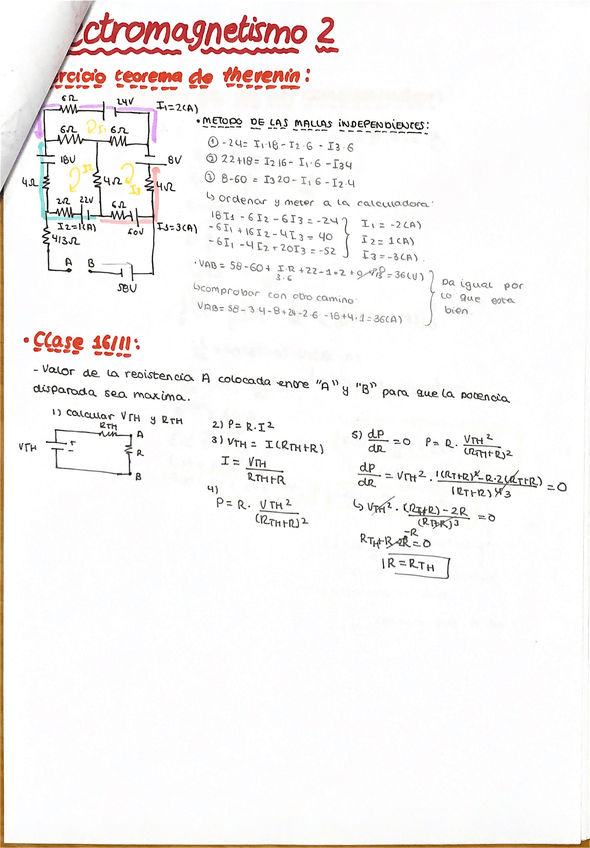 ectromagnetismo 2
rcicio teorema de thevenin:
6Ω 24V I₁=2(A)
6Ω I₁ 6Ω
18V 8V
4Ω I2 4Ω I3 4Ω
2Ω 22V 6Ω
I2=1(A) 60V I3=3(A)
4/3Ω
A B
58V
• METODO DE LAS MALLAS INDEPENDIENTES:
① -24 = I₁·18 - I₂·6 - I₃·6
② 22+18 = I₂16 - I₁·6 - I₃4
③ 8-60 = I₃20 - I₁6 - I₂·4
↳ ordenar y meter a la calculadora:
18I₁ - 6I₂ - 6I₃ = -24 I₁ = -2(A)
-6I₁ + 16I₂ - 4I₃ = 40 I₂ = 1(A)
-6I₁ - 4I₂ + 20I₃ = -52 I₃ = -3(A).
• VAB = 58-60+ I·R 3·6 +22-1·2+0 = 36(V)
↳comprobar con otro camino:
VAB = 58-3·4-8+24-2·6-18+4·1=36(A)
Da igual por
lo que esta
bien.
• Clase 16/11:
- Valor de la resistencia A colocada entre "A" y "B" para que la potencia
disparada sea maxima.
1) calcular VTH y RTH
RTH A
VTH + - R
B
2) P = R·I²
3) VTH = I(RTH+R)
I = VTH / RTH+R
4)
P = R· VTH² / (RTH+R)²
5) dP/dR = 0 P = R· VTH² / (RTH+R)²
dP/dR = VTH² · 1(RTH+R)² - R·2(RTH+R) / (RTH+R)⁴ 3 = 0
↳ VTH² · (RTH+R) - 2R / (RTH+R)³ = 0
-R
RTH+R-2R = 0
R = RTH